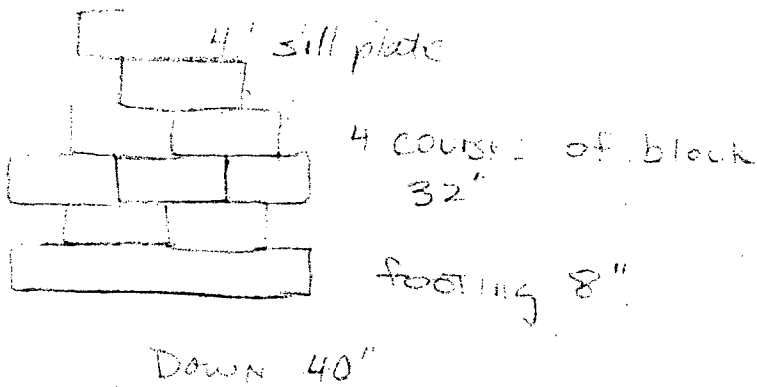 4' sill plate
4 courses of block
32"
footing 8"
Down 40"